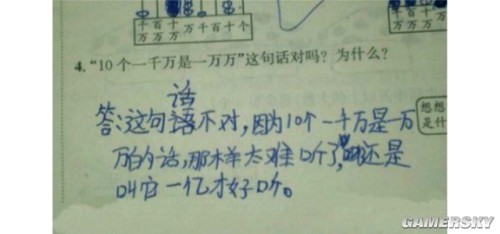 千百十
万万万万千百十个
4. “10 个一千万是一万万”这句话对吗？为什么？
话
答:这句不对,因为10个一千万是一万
万的话,那样太难听了,还是
叫它一亿才好听。
想想
是什
GAMERSKY